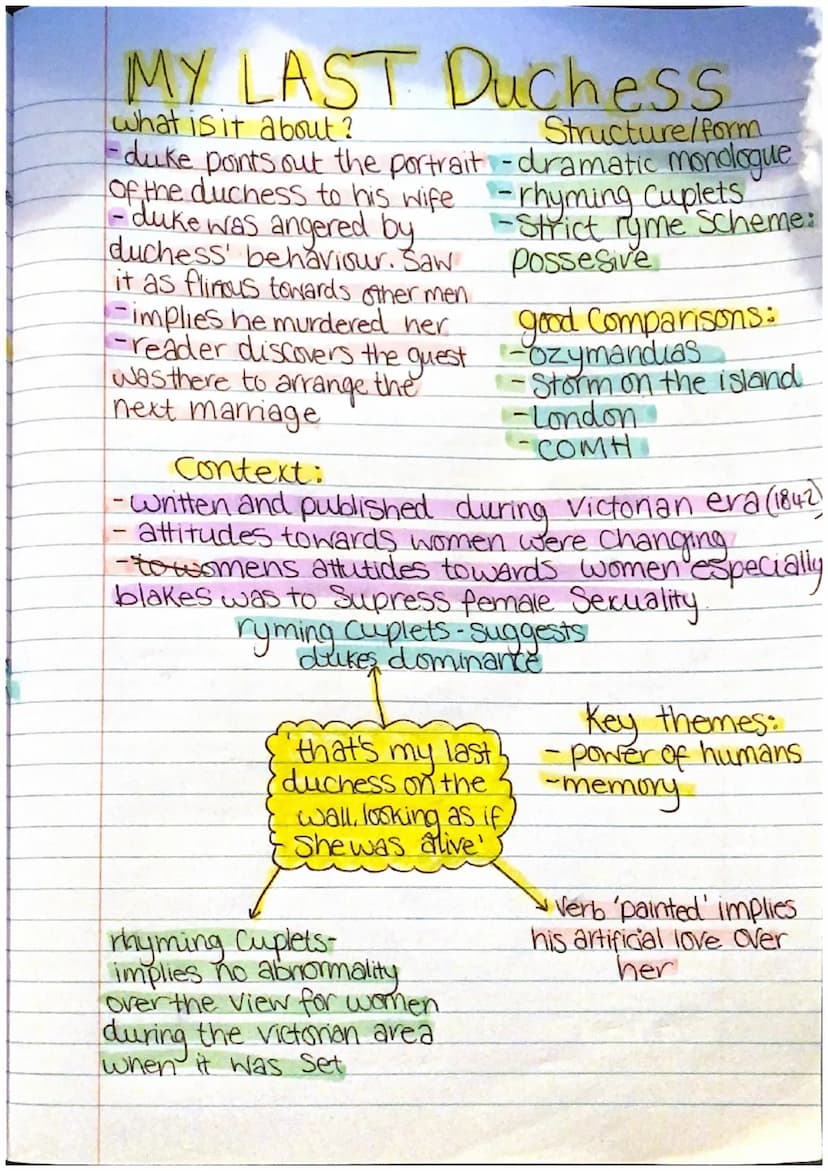 MY LAST Duchess
what is it about?
- duke points out the portrait
of the duchess to his wife
- duke was angered by
duchess' behaviour. Saw
it as flirous towards other men
- implies he murdered her
- reader discovers the guest
was there to arrange the
next marriage
Structure/form
- dramatic monologue
- rhyming Cuplets
- Strict ryme Scheme:
possesive
good Comparisons:
- Ozymandias
- Storm on the island
- London
- COMH
Context:
- written and published during Victorian era (1842)
- attitudes towards women were changing
- to wosmens attutides towards women especially
blakes was to Supress female Sexuality.
ryming Cuplets - suggests
dukes dominance
'that's my last
duchess on the
wall, looking as if
She was alive'
Key themes:
- power of humans
- memory
verb 'painted' implies
his artificial love over
her
rhyming Cuplets -
implies no abnormality
over the view for women
during the victorian area
when it was set